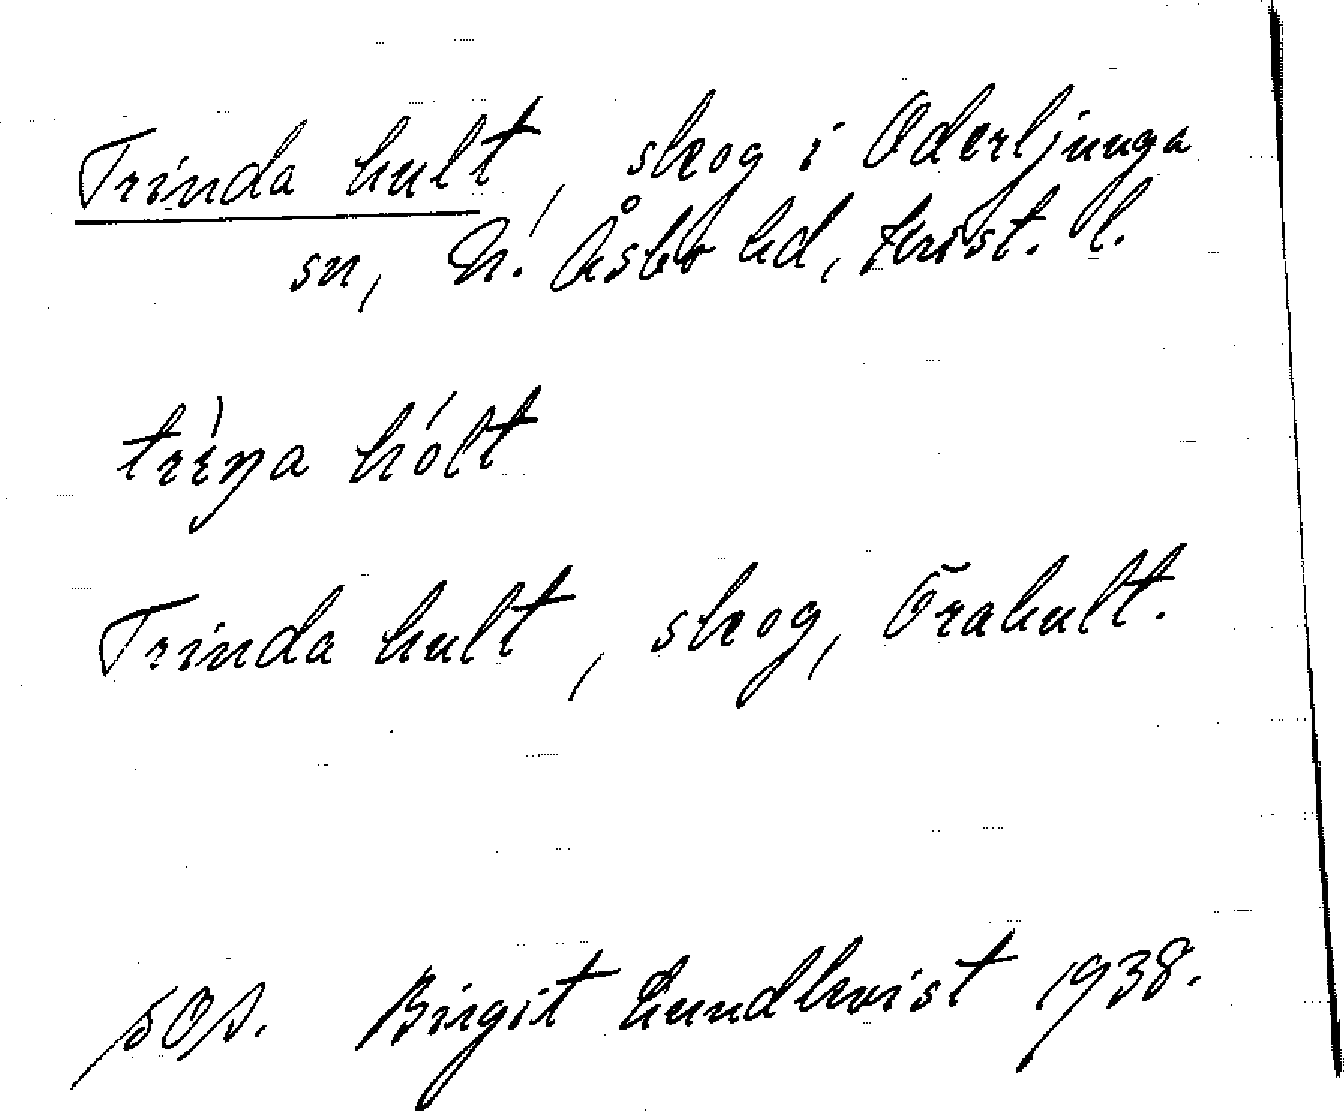 Trinda hult, skog i Oderljunga
sn, N. Åsbo hd, Krist. l.
trìŋa hólt
Trinda hult, skog, Örahult.
SOA. Birgit Lundkvist 1938.